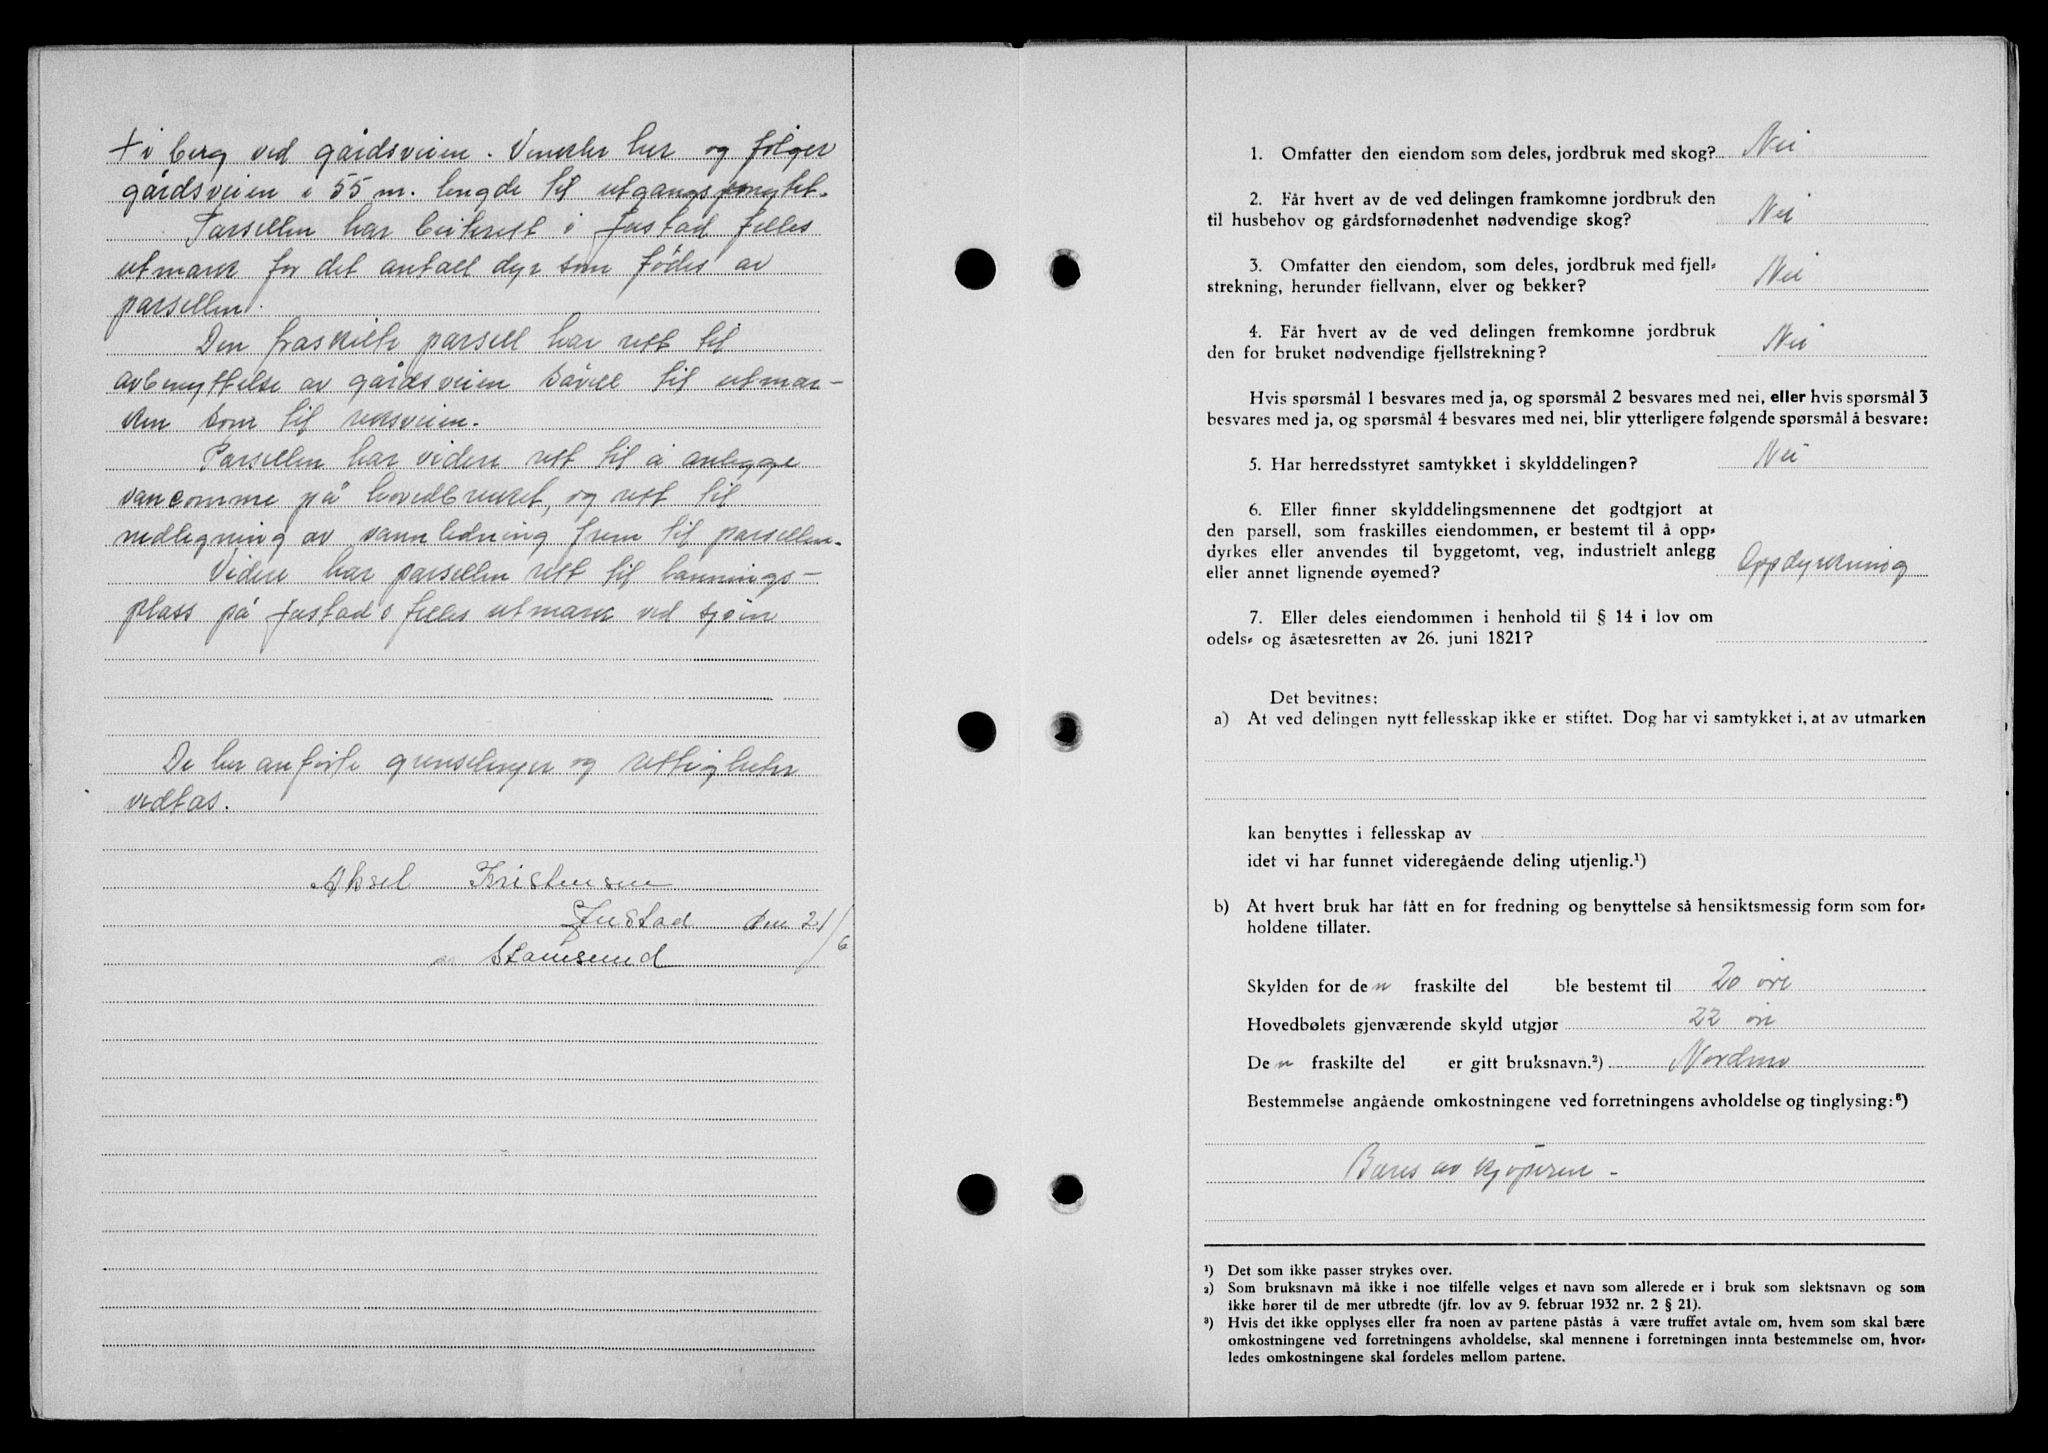 + i berg ved gårdsveien. Vinkeler her og følger
gårdsveien i 55 m. lengde til utgangspunktet.
Parsellen har beiterett i Justad felles
utmark for det antall dyr som fødes av
parsellen.
Den fraskilte parsell har rett til
avbenyttelse av gårdsveien såvel til utmar-
ken som til riksveien.
Parsellen har videre rett til å anlegge
vankomme på hovedbruket, og rett til
nedlegning av vannledning frem til parsellen.
Videre har parsellen rett til tannings-
plass på Justad's felles utmark ved sjøen
De her anførte grenselinjer og rettigheter
vedtas.
Aksel Kristensen
Justad den 21/6
Stamsund
1. Omfatter den eiendom som deles, jordbruk med skog? Nei
2. Får hvert av de ved delingen framkomne jordbruk den
til husbehov og gårdsfornødenhet nødvendige skog? Nei
3. Omfatter den eiendom, som deles, jordbruk med fjell-
strekning, herunder fiellvann, elver og bekker? Nei
4. Får hvert av de ved delingen fremkomne jordbruk
den for bruket nødvendige fjellstrekning? Nei
Hvis spørsmål 1 besvares med ja, og spørsmål 2 besvares med nei, eller hvis spørsmål 3
besvares med ja, og spørsmål 4 besvares med nei, blir ytterligere følgende spørsmål å besvare:
5. Har herredsstyret samtykket i skylddelingen? Nei
6. Eller finner skylddelingsmennene det godtgjort at
den parsell, som fraskilles eiendommen, er bestemt til å opp-
dyrkes eller anvendes til byggetomt, veg, industrielt anlegg
eller annet lignende øyemed? Oppdyrkning
7. Eller deles eiendommen i henhold til § 14 i lov om
odels- og åsætesretten av 26. juni 1821?
Det bevitnes:
a) At ved delingen nytt fellesskap ikke er stiftet. Dog har vi samtykket i, at av utmarken
kan benyttes i fellesskap av
idet vi har funnet videregående deling utjenlig.¹)
b) At hvert bruk har fått en for fredning og benyttelse så hensiktsmessig form som for-
holdene tillater.
Skylden for den fraskilte del ble bestemt til 20 øre
Hovedbølets gjenværende skyld utgjør 22 øre
Den fraskilte del er gitt bruksnavn.²) Nordmo
Bestemmelse angående omkostningene ved forretningens avholdelse og tinglysing:³)
Bæres av kjøperen -
¹) Det som ikke passer strykes over.
²) Som bruksnavn må ikke i noe tilfelle velges et navn som allerede er i bruk som slektsnavn og som
ikke hører til de mer utbredte (jfr. lov av 9. februar 1932 nr. 2 § 21).
³) Hvis det ikke opplyses eller fra noen av partene påstås å være truffet avtale om, hvem som skal bære
omkostningene ved forretningens avholdelse, skal mennene i forretningen innta bestemmelse om, hvor-
ledes omkostningene skal fordeles mellom partene.